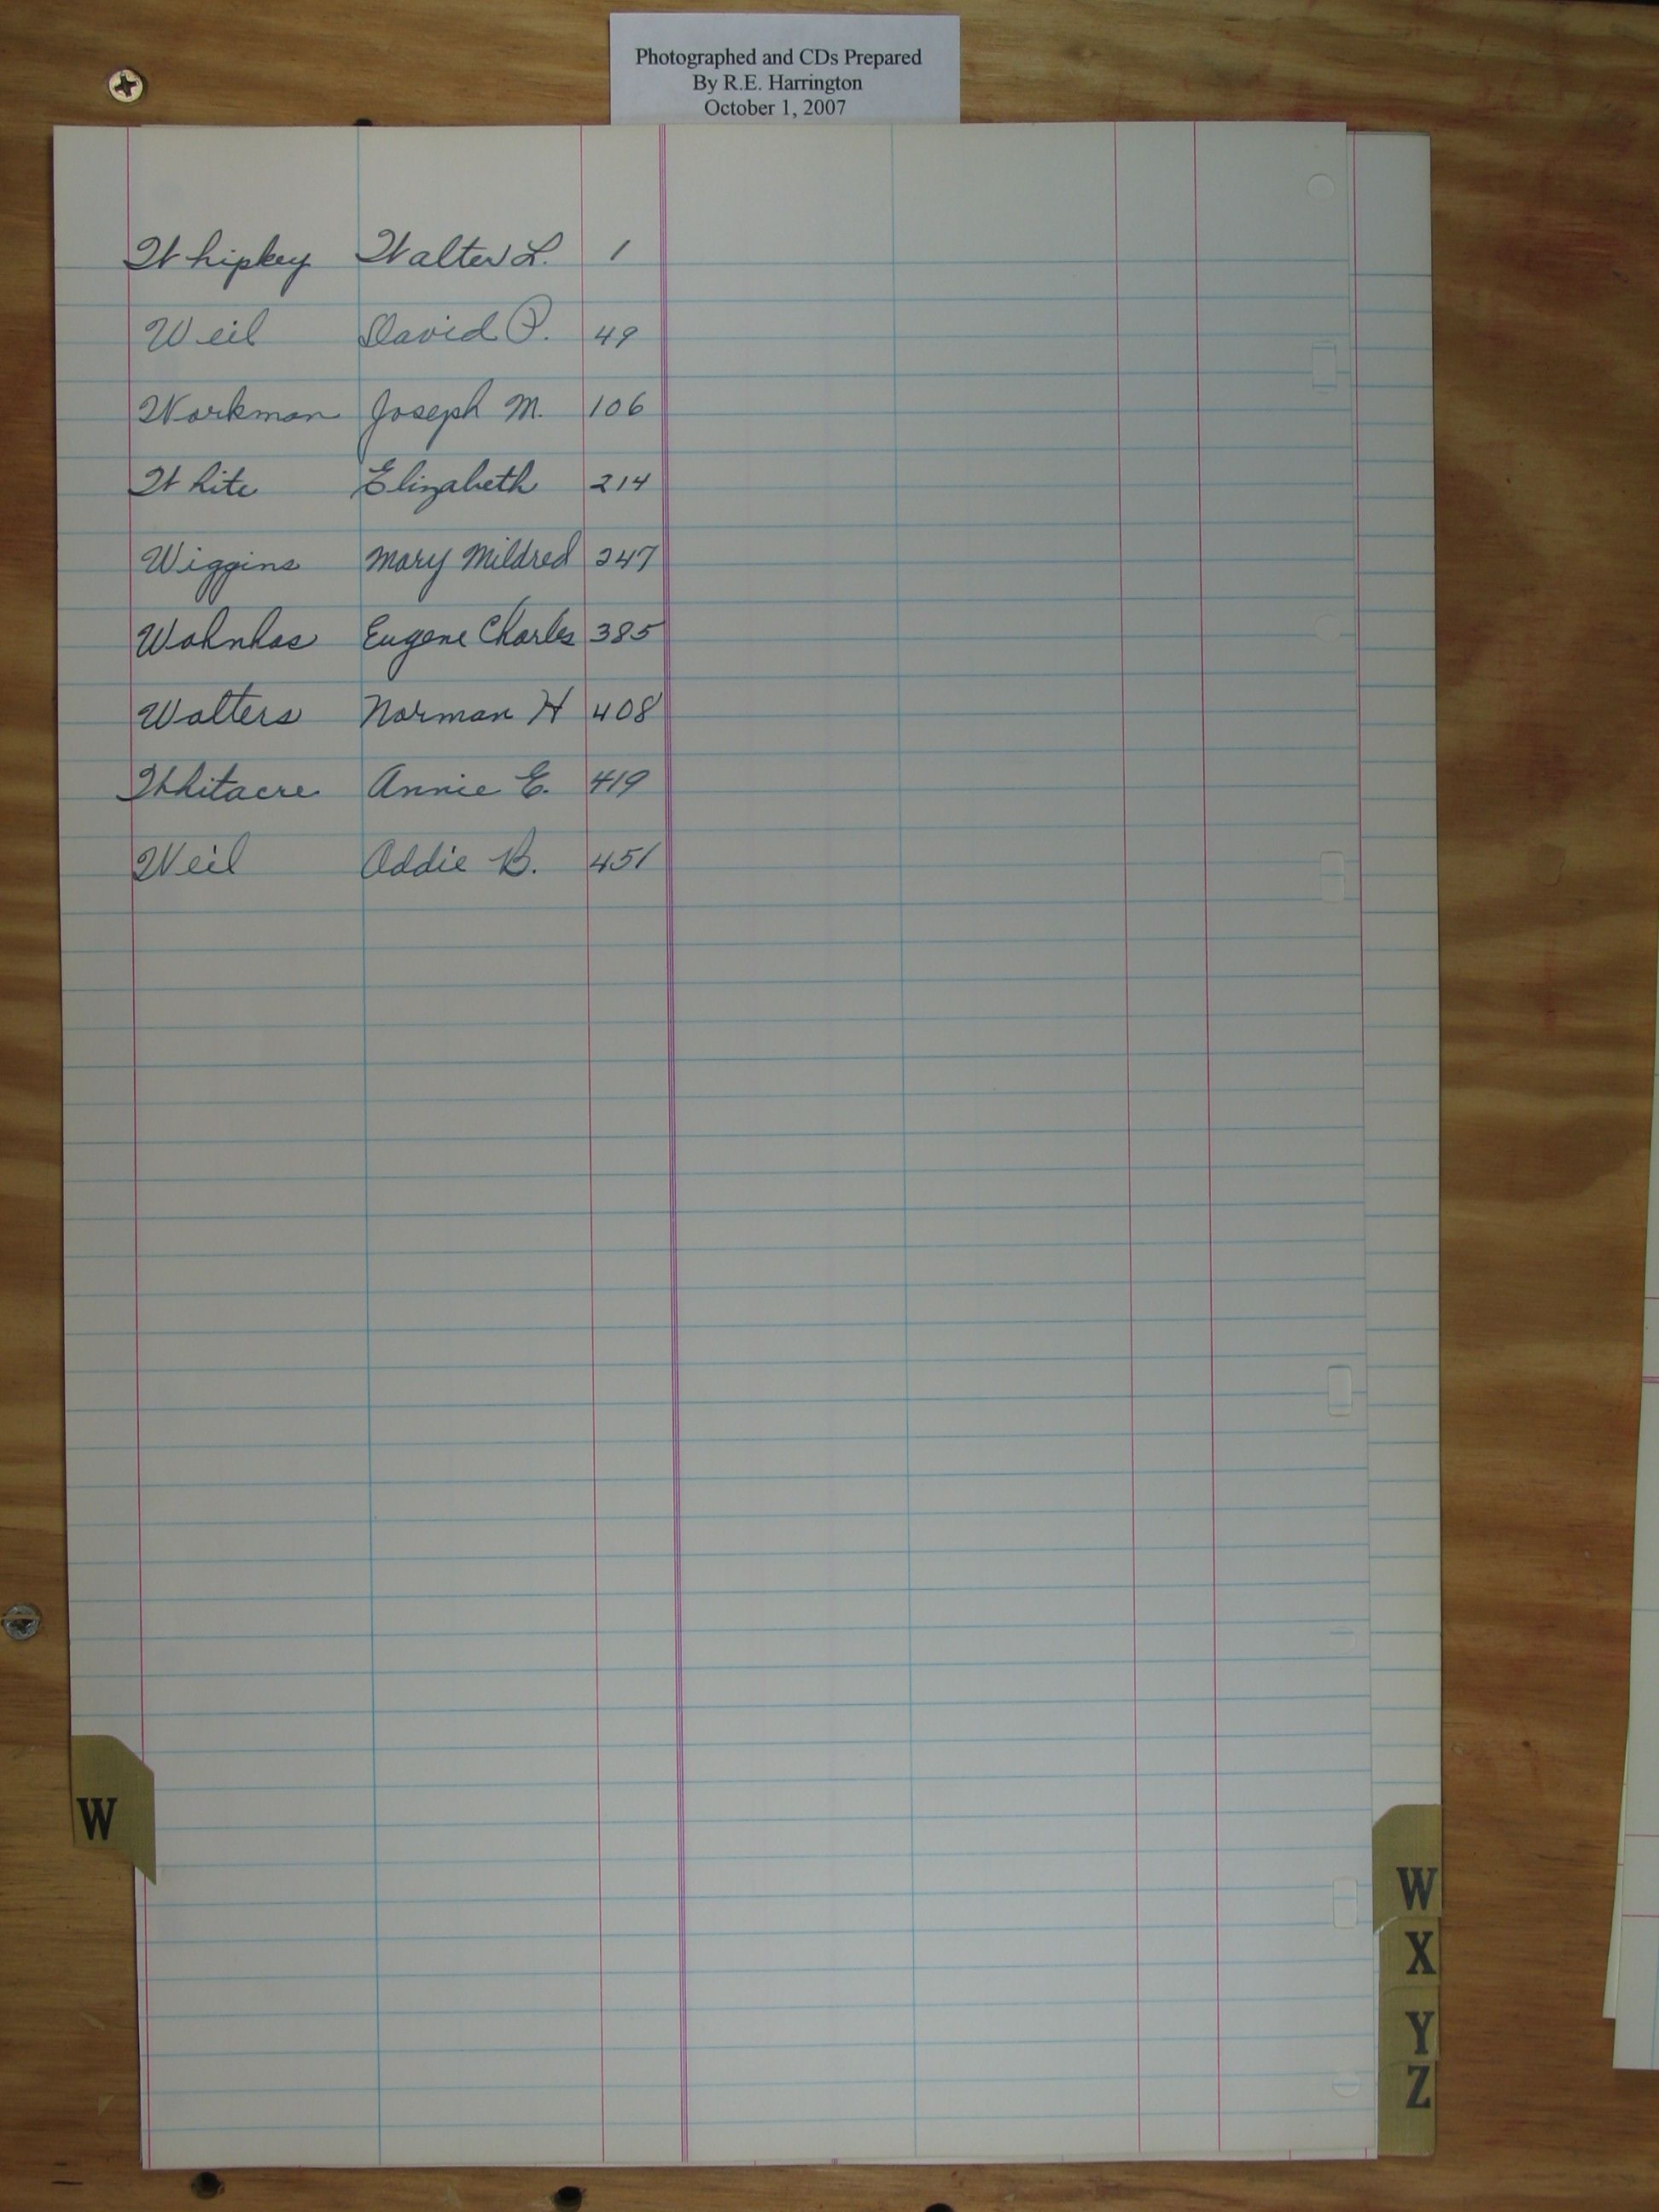 Photographed and CDs Prepared
By R.E. Harrington
October 1, 2007
Whipkey Walter L. 1
Weil David P. 49
Workman Joseph M. 106
White Elizabeth 214
Wiggins Mary Mildred 247
Wohnhas Eugene Charles 385
Walters Norman H 408
Whitacre Annie E. 419
Weil Addie B. 451
W
W
X
Y
Z